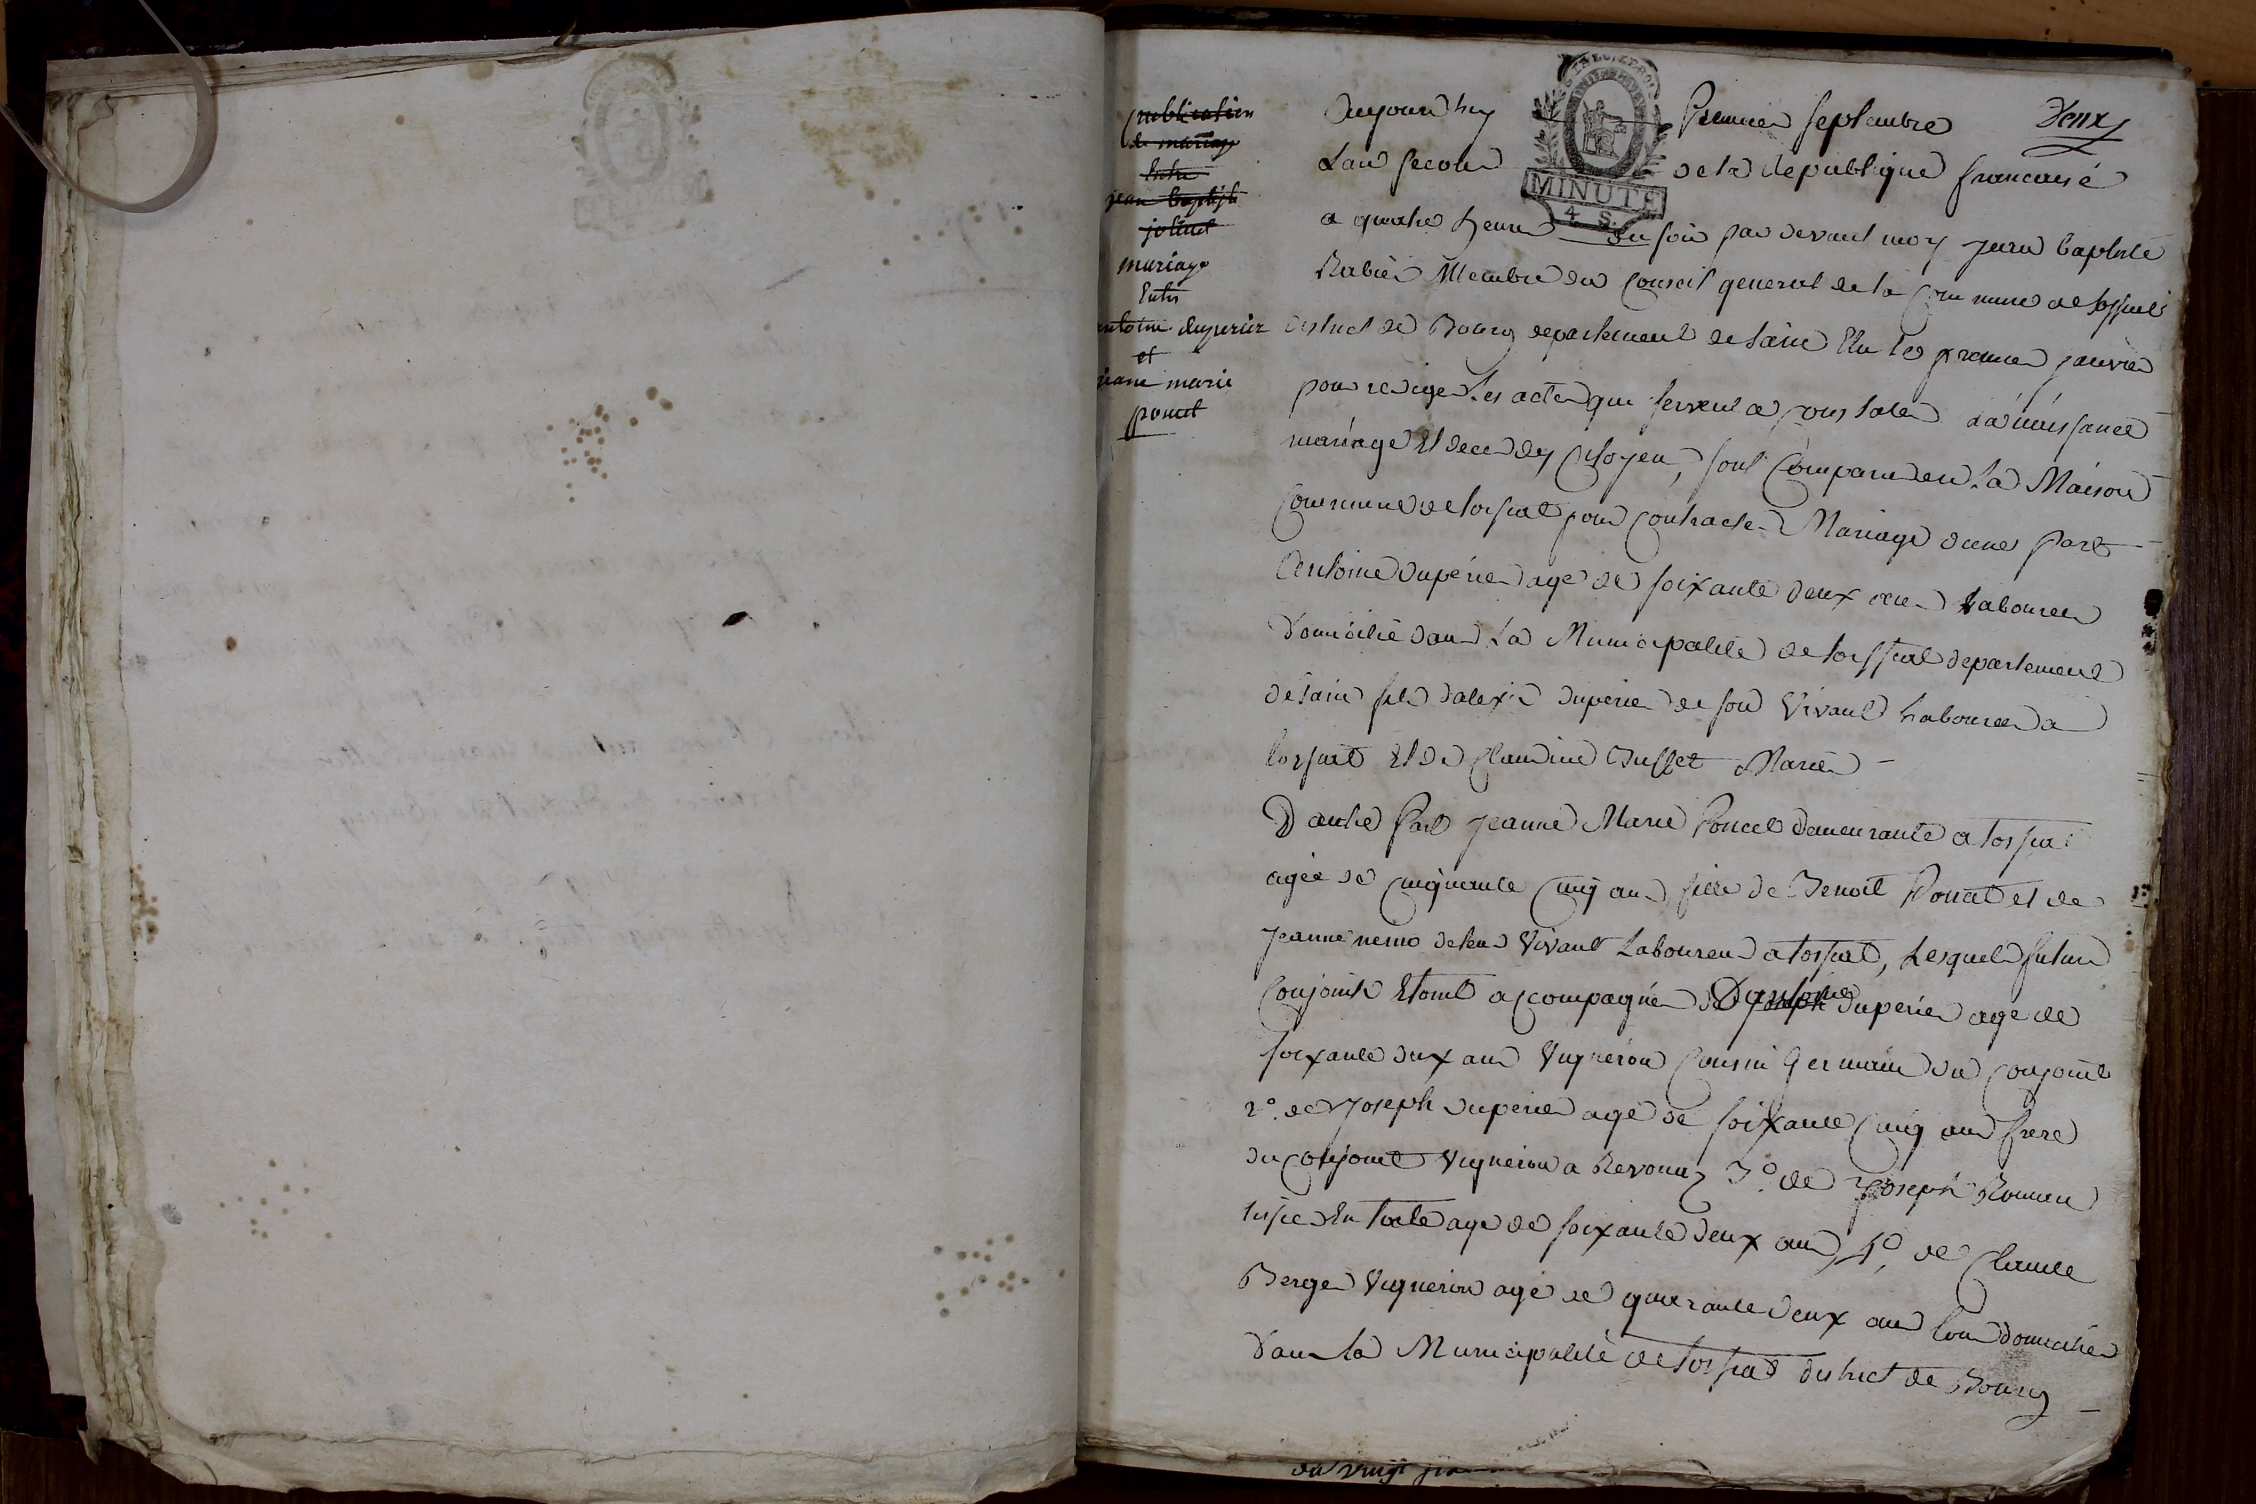 publication
de mariage
Entre
jean baptiste
jolliet
mariage
Entre
antoine duperier
et
jeane marie
poncet
Deux
MINUTE
4 S.
Aujourdhuy Premier septembre
Lan second de la Republique francaise
a quatre heures du soir par devant moy jean baptiste
Rabier Membre du Conseil general de la Commune de tossiat
district de Bourg departement de Lain Elu le premier janvier
pour rediger les actes qui servent a constater la naissance
mariage Et deces des citoyens, sont Comparus en la Maison
Commune de tossiat pour contracter Mariage dune part
Antoine duperier agé de soixante deux ans Laboureur
domicilié dans La Municipalité de tossiat departement
de Lain fils dalexis duperier de son Vivant Laboureur a
tossiat Et de Claudine Mariés
Dautre Part jeanne Marie Poncet demeurante a tossiat
agée de cinquante cinq ans fille de Benoit Poncet et de
jeanne de leur Vivant Laboureurs a tossiat, Lesquels futurs
Conjoints Etoient accompagnés Dantoine duperier agé de
soixante deux ans Vigneron Cousin Germain du Conjoint
2º. de Joseph duperier agé de soixante cinq ans frere
du Conjoint Vigneron a Revonnaz 3º. de Joseph
agé de soixante deux ans, 4º. de Claude
Berger Vigneron agé de quarante deux ans tous domiciliés
dans la Municipalité de tossiat district de Bourg
du vingt